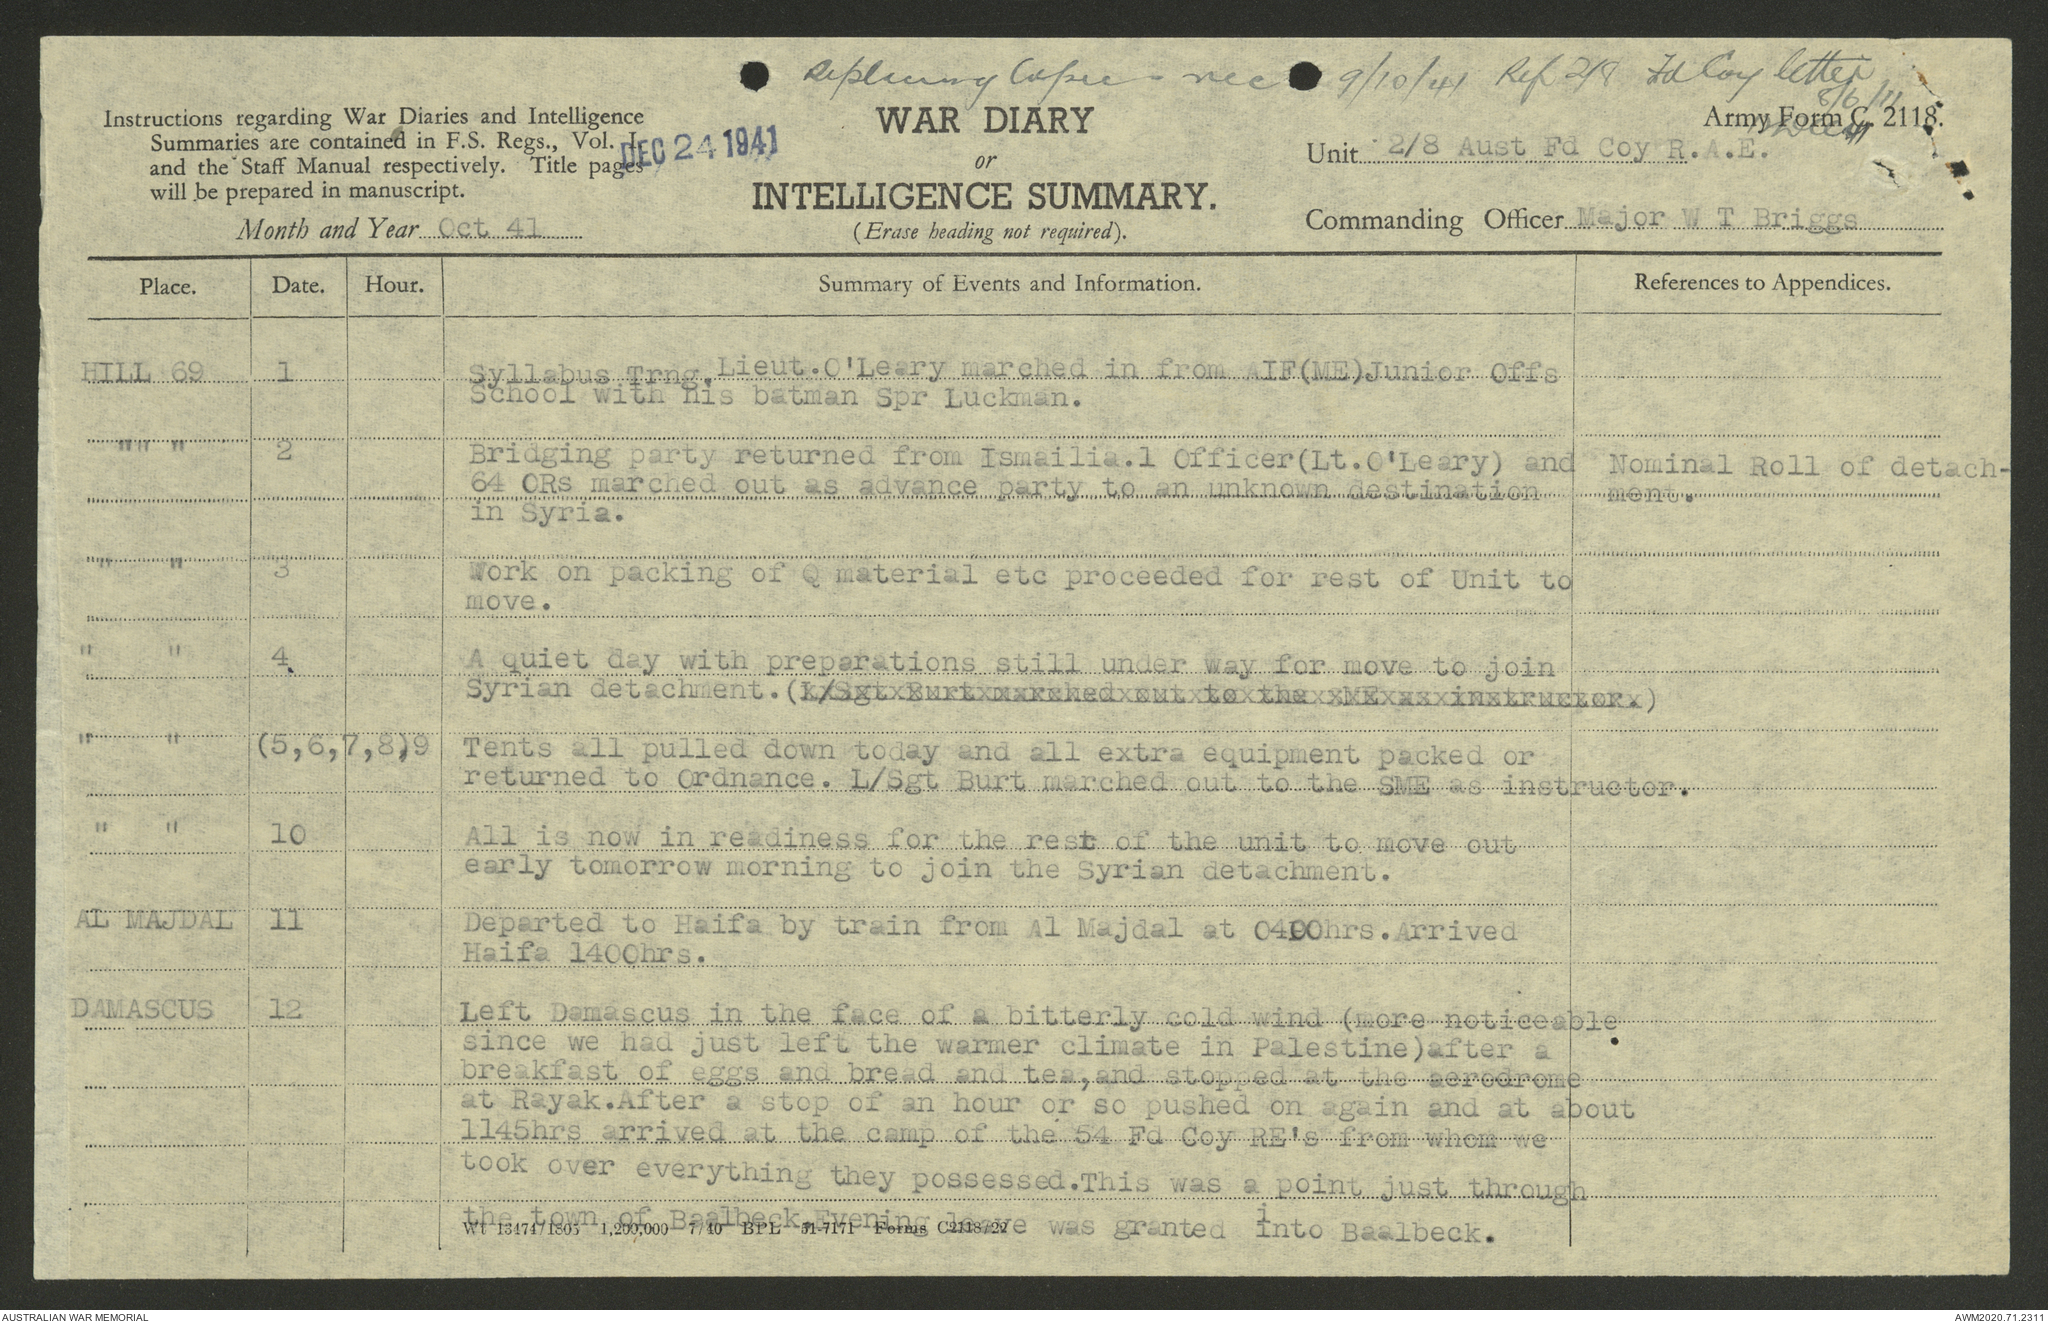 Replacing Copies rec 9/10/41 Ref 2/8 Fd Coy letter
Instructions regarding War Diaries and Intelligence
Summaries are contained in F.S. Regs., Vol. I.
and the Staff Manual respectively. Title pages
will be prepared in manuscript.
DEC 24 1941
Month and Year Oct 41
WAR DIARY
or
INTELLIGENCE SUMMARY.
(Erase heading not required).
Army Form C. 2118.
Unit 2/8 Aust Fd Coy R.A.E.
Commanding Officer Major W T Briggs
Place. Date. Hour. Summary of Events and Information. References to Appendices.
HILL 69 1 Syllabus Trng.Lieut.O'Leary marched in from AIF(ME)Junior Offs
School with his batman Spr Luckman.
"" " 2 Bridging party returned from Ismailia.1 Officer(Lt.O'Leary) and Nominal Roll of detach-
64 ORs marched out as advance party to an unknown destination ment.
in Syria.
" " 3 Work on packing of Q material etc proceeded for rest of Unit to
move.
" " 4. A quiet day with preparations still under way for move to join
Syrian detachment.(L/Sgt Burt marched out to the ME as instructor.)
" " (5,6,7,8),9 Tents all pulled down today and all extra equipment packed or
returned to Ordnance. L/Sgt Burt marched out to the SME as instructor.
" " 10 All is now in readiness for the rest of the unit to move out
early tomorrow morning to join the Syrian detachment.
AL MAJDAL 11 Departed to Haifa by train from Al Majdal at 0400hrs.Arrived
Haifa 1400hrs.
DAMASCUS 12 Left Damascus in the face of a bitterly cold wind (more noticeable
since we had just left the warmer climate in Palestine)after a
breakfast of eggs and bread and tea,and stopped at the aerodrome
at Rayak.After a stop of an hour or so pushed on again and at about
1145hrs arrived at the camp of the 54 Fd Coy RE's from whom we
took over everything they possessed.This was a point just through
the town of Baalbeck.Evening leave was granted into Baalbeck.
Wt 13474/1805 1,200,000 7/40 BPL 51-7171 Forms C2118/22
AUSTRALIAN WAR MEMORIAL AWM2020.71.2311